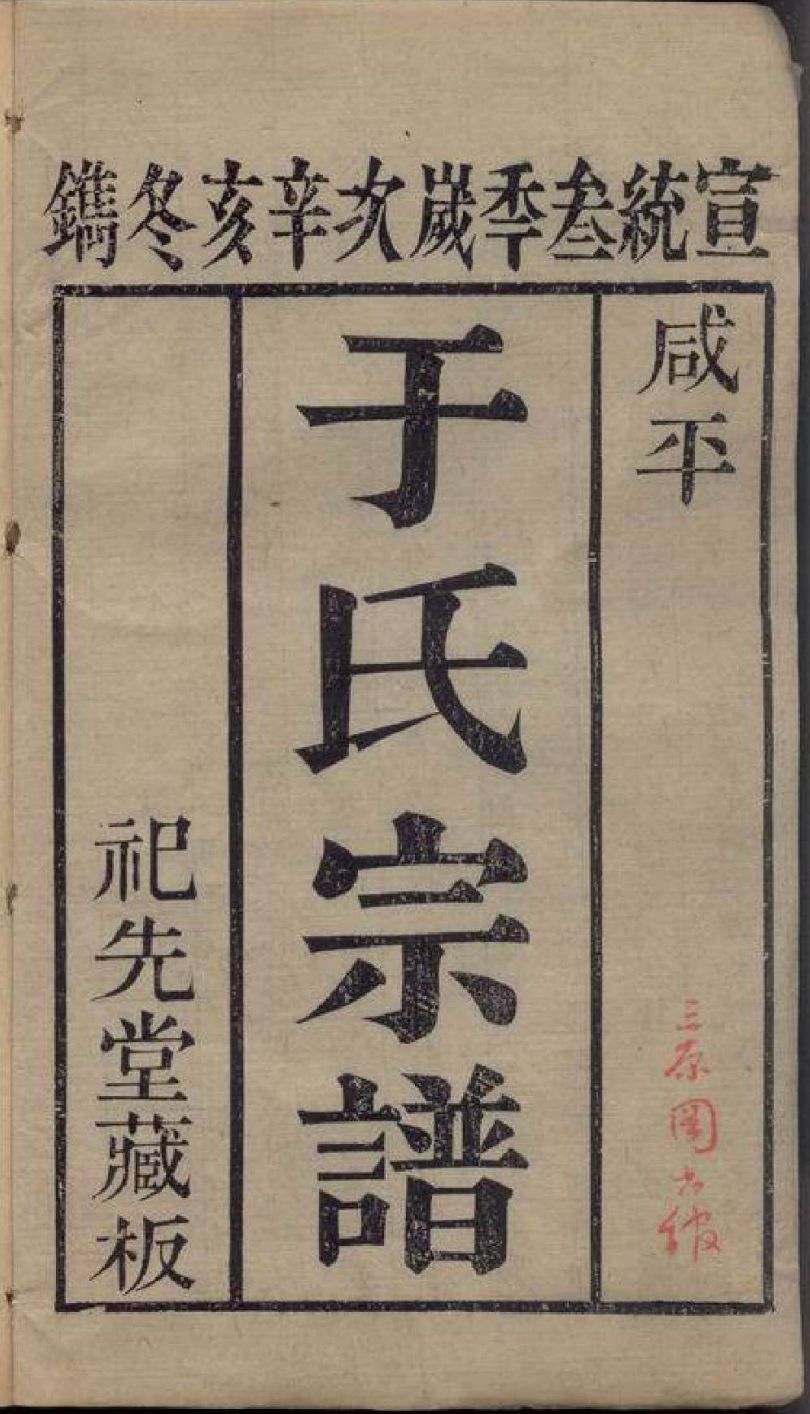 宣統叁季歲次辛亥冬鐫
咸平
于氏宗譜
祀先堂藏板
三原